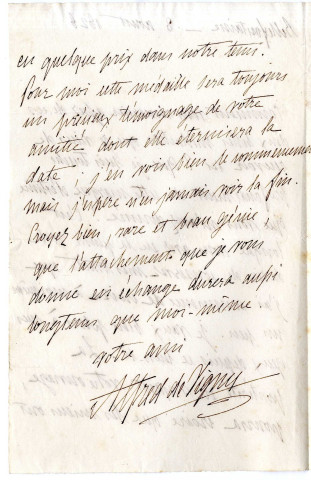 en quelque prix dans notre tems.
Pour moi cette médaille sera toujours
un précieux témoignage de votre
amitié dont elle éternisera la
date ; j'en vois bien le commencement
mais j'espère n'en jamais voir la fin.
Croyez bien, rare et beau génie,
que l'attachement que je vous
donne en échange durera aussi
longtems que moi-même.
votre ami
Alfred de Vigny